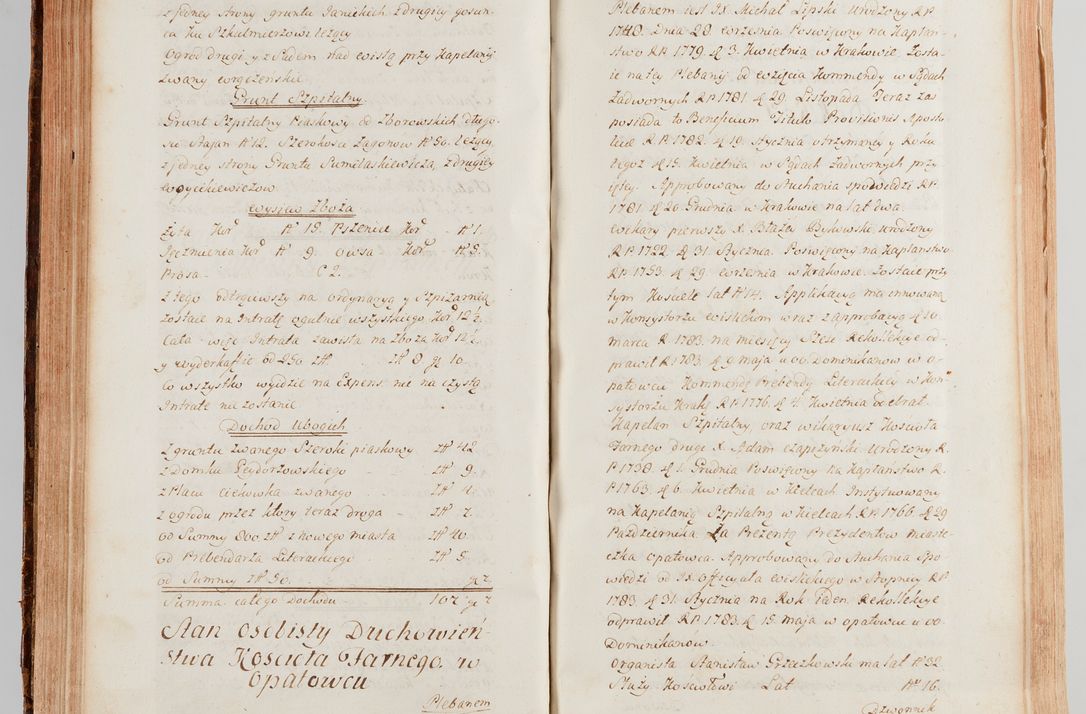 z jedney strony gruntu Janickich z drugiey gosun-
ca ku Szkulmierzowi leżący
Ogród drugi y z sadem nad wisłą przy Kapelanij
zwany
Grunt Szpitalny
Grunt Szpitalny Piaskowy od Zborowskich długo-
ści Stajan № 12. Szerokości Zagonow № 50. leżący,
z jedney strony Gruntu z drugiey
Woycikiewiczow
Wysiew Zboża
Żyta Kor № 15. Pszenice Kor № 1.
Jęczmienia Kor № 9. owsa Kor № 8.
Prosa - C 2.
z tego odtrąciwszy na ordynaryą y Szpiżarnią
zostaie na Intratę ogulnie wszystkiego Kor 12 ½.
Cała więc Intrata zawisła na Zboża Kor 12 ½
y wyderkaffie od 250 zł zł 8 gr 10.
Co wszystko wyidzie na Expens nie na czystą
Intratę nie zostanie.
Dochod Ubogich
Z gruntu zwanego Szeroki piaskowy. zł 42
z Domku zł 9.
z Placu Ciekowka zwanego zł 4.
z ogrodu przez ktory teraz droga zł 2.
od Summy 800 zł z nowego miasta zł 40.
od Prebendarza Literackiego zł 5.
od Summy zł 50. gr 2
Summa całego Dochodu 102 gr 2
Stan osobisty Duchowień-
stwa Kościoła Farnego w
Opatowcu
Plebanem
Plebanem iest JX Michał Lipski Urodzony RP
1748. Dnia 28 września Poswięcony na Kapłań-
stwo RP 1779. d 3. Kwietnia w Krakowie. Zosta-
ie na tey Plebanij od wzięcia Kommendy w Sądach
Zadwornych RP 1781. d 29. Listopada Teraz zas
posiada to Beneficium Titulo Provisionis Aposto-
licæ RP 1782. d 19. Stycznia otrzymaney y Roku
tegoż d 15. Kwietnia w Sądach Zadwornych przy-
iętey. Approbowany do Słuchania spowiedzi RP.
1781. d 20. Grudnia w Krakowie na lat dwa.
Wikary pierwszy X Błażey Bykowski urodzony
RP 1722. d 31. Stycznia. Poswięcony na Kapłanstwo
RP 1753. d 29. września w Krakowie. Zostaie przy
tym Kościele lat № 14. Applikacyą ma innowaną
w Konsystorzu wiślickim wraz z approbacyą d 10.
marca R 1783. na miesięcy Szesc Rekollekcye od-
prawił R 1783. d 9 maja u oo. Dominikanow w o-
patowcu Kommendę Prebendy Literackiey w Kon-
systorzu Krak: RP 1776. d 4. Kwietnia odebrał
Kapelan Szpitalny, oraz wikaryusz Kościoła
Farnego drugi X. Adam urodzony R.
P 1738. d 1. Grudnia Poswięcony na Kapłanstwo R.
P 1763. d 6. Kwietnia w Kielcach Instytuowany
na Kapelanią Szpitalną w Kielcach RP 1766 d 29
Pazdziernika Za Prezentą Prezydentow miaste-
czka opatowca. Approbowany do Słuchania Spo-
wiedzi od JX. Officyała wiślickiego w Stopnicy RP
1783. d 31. Stycznia na Rok ieden. Rekollekcye
odprawił RP 1783. d 15. maja w opatowcu u oo.
Dominikanow.
Organista Stanisław Grzeczkowski ma lat № 32.
Służy Kościołowi Lat № 16.
Dzwonnik